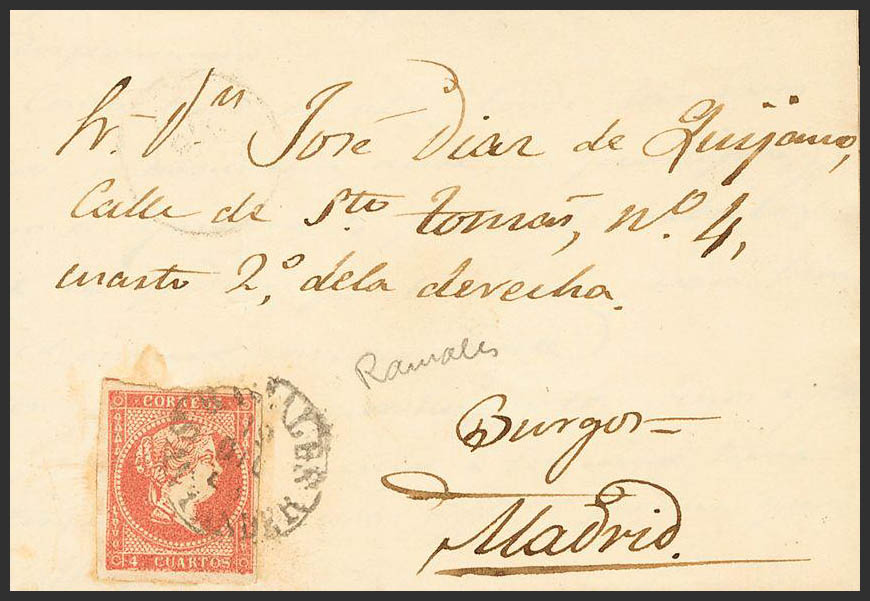 Sr. Dn José Diaz de Quijano,
Calle de Sto. tomás, nº. 4,
cuarto 2º. de la derecha.
Ramales
Burgos =
Madrid.
CORREOS
4 CUARTOS